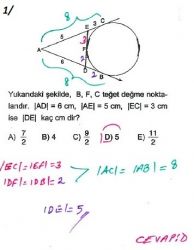 1/
8
E 3 C
5
3
A
F
6
2
D 2 B
8
Yukarıdaki şekilde, B, F, C teğet değme nokta-
larıdır. |AD| = 6 cm, |AE| = 5 cm, |EC| = 3 cm
ise |DE| kaç cm dir?
A) 7/2 B) 4 C) 9/2 D) 5 E) 11/2
|EC|=|EF|=3
|DF|=|DB|=2
|AC|=|AB|=8
|DE|=5
CEVAP D